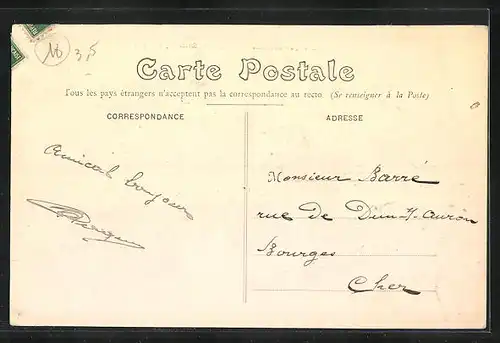 16
3,5
Carte Postale
Tous les pays étrangers n'acceptent pas la correspondance au recto (Se renseigner à la Poste)
CORRESPONDANCE
ADRESSE
Amical bonjour
Monsieur Barré
rue de Dun-s/-Auron
Bourges
Cher